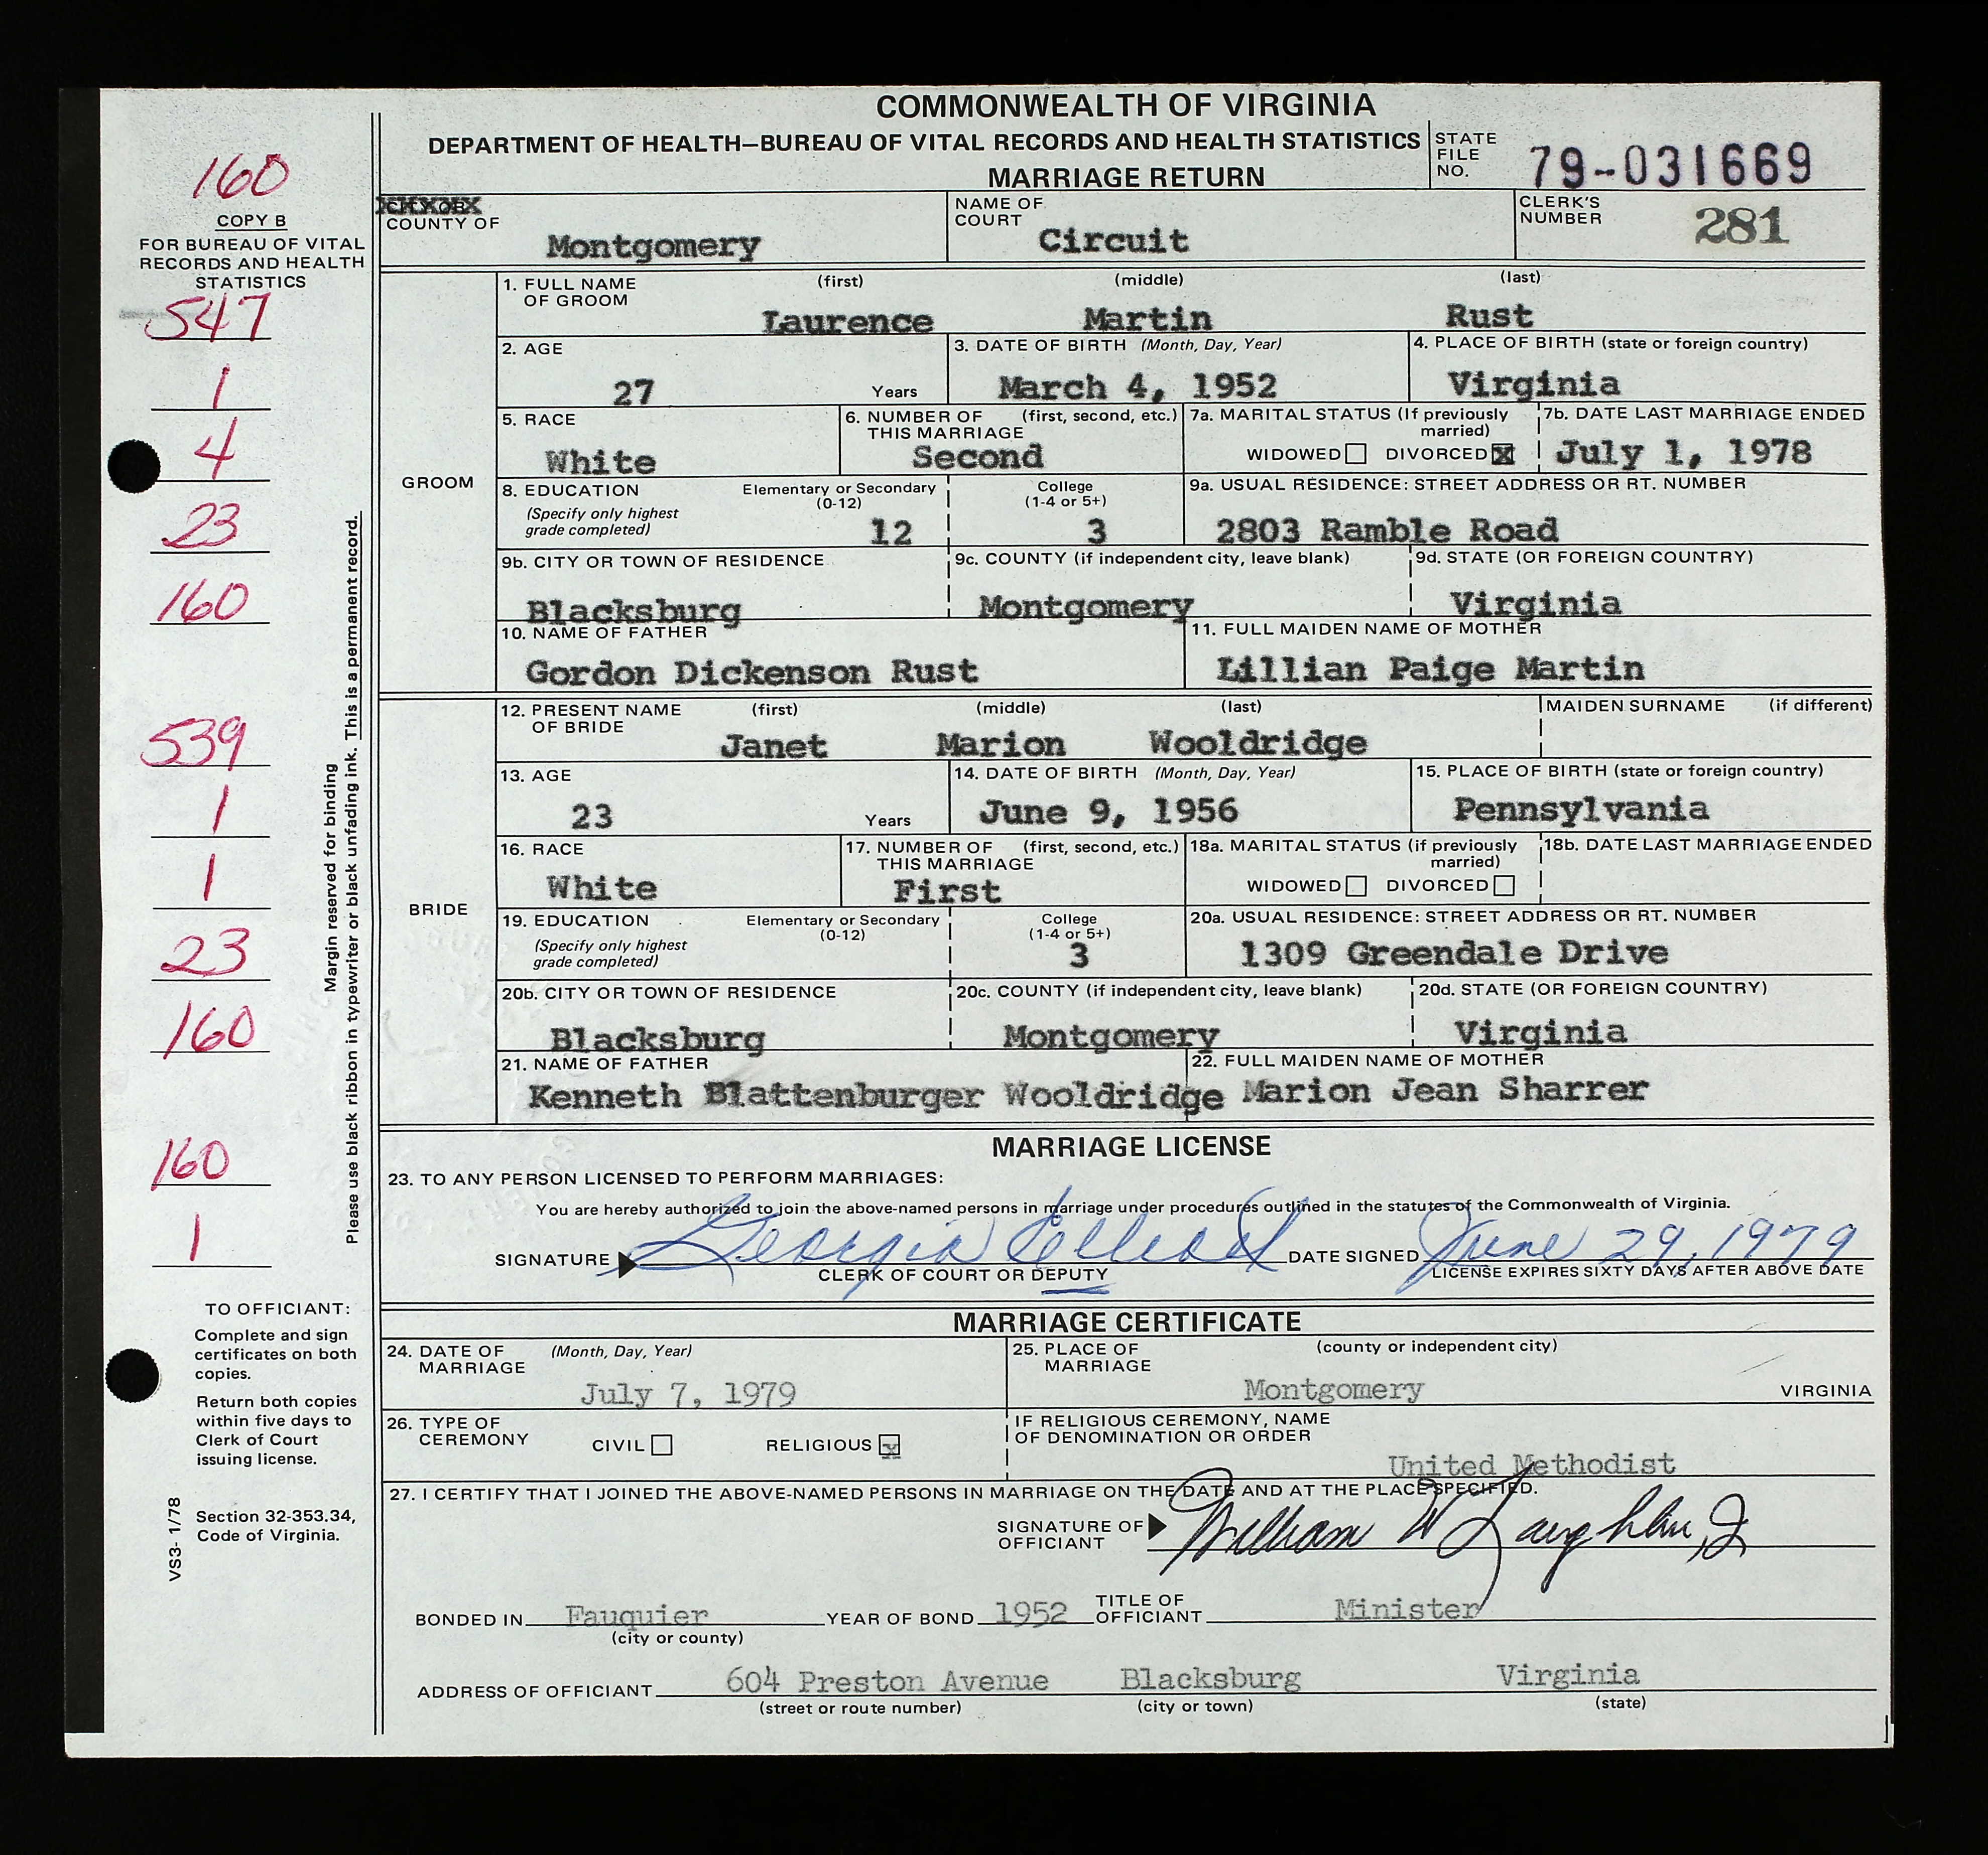 COMMONWEALTH OF VIRGINIA
DEPARTMENT OF HEALTH—BUREAU OF VITAL RECORDS AND HEALTH STATISTICS
MARRIAGE RETURN
STATE FILE NO. 79-031669
160
COPY B
FOR BUREAU OF VITAL
RECORDS AND HEALTH
STATISTICS
547
1
4
23
160
539
1
1
23
160
160
1
Margin reserved for binding
Please use black ribbon in typewriter or black unfading ink. This is a permanent record.
TO OFFICIANT:
Complete and sign
certificates on both
copies.
Return both copies
within five days to
Clerk of Court
issuing license.
Section 32-353.34,
Code of Virginia.
VS3- 1/78
CITY OR
COUNTY OF Montgomery
NAME OF COURT Circuit
CLERK'S NUMBER 281
GROOM
1. FULL NAME OF GROOM (first) (middle) (last)
Laurence Martin Rust
2. AGE 27 Years
3. DATE OF BIRTH (Month, Day, Year) March 4, 1952
4. PLACE OF BIRTH (state or foreign country) Virginia
5. RACE White
6. NUMBER OF THIS MARRIAGE (first, second, etc.) Second
7a. MARITAL STATUS (If previously married) WIDOWED DIVORCED X
7b. DATE LAST MARRIAGE ENDED July 1, 1978
8. EDUCATION (Specify only highest grade completed) Elementary or Secondary (0-12) 12 College (1-4 or 5+) 3
9a. USUAL RESIDENCE: STREET ADDRESS OR RT. NUMBER 2803 Ramble Road
9b. CITY OR TOWN OF RESIDENCE Blacksburg
9c. COUNTY (if independent city, leave blank) Montgomery
9d. STATE (OR FOREIGN COUNTRY) Virginia
10. NAME OF FATHER Gordon Dickenson Rust
11. FULL MAIDEN NAME OF MOTHER Lillian Paige Martin
BRIDE
12. PRESENT NAME OF BRIDE (first) (middle) (last) MAIDEN SURNAME (if different)
Janet Marion Wooldridge
13. AGE 23 Years
14. DATE OF BIRTH (Month, Day, Year) June 9, 1956
15. PLACE OF BIRTH (state or foreign country) Pennsylvania
16. RACE White
17. NUMBER OF THIS MARRIAGE (first, second, etc.) First
18a. MARITAL STATUS (if previously married) WIDOWED DIVORCED
18b. DATE LAST MARRIAGE ENDED
19. EDUCATION (Specify only highest grade completed) Elementary or Secondary (0-12) College (1-4 or 5+) 3
20a. USUAL RESIDENCE: STREET ADDRESS OR RT. NUMBER 1309 Greendale Drive
20b. CITY OR TOWN OF RESIDENCE Blacksburg
20c. COUNTY (if independent city, leave blank) Montgomery
20d. STATE (OR FOREIGN COUNTRY) Virginia
21. NAME OF FATHER Kenneth Blattenburger Wooldridge
22. FULL MAIDEN NAME OF MOTHER Marion Jean Sharrer
MARRIAGE LICENSE
23. TO ANY PERSON LICENSED TO PERFORM MARRIAGES:
You are hereby authorized to join the above-named persons in marriage under procedures outlined in the statutes of the Commonwealth of Virginia.
SIGNATURE Georgia Elliott DATE SIGNED June 29, 1979
CLERK OF COURT OR DEPUTY LICENSE EXPIRES SIXTY DAYS AFTER ABOVE DATE
MARRIAGE CERTIFICATE
24. DATE OF MARRIAGE (Month, Day, Year) July 7, 1979
25. PLACE OF MARRIAGE (county or independent city) Montgomery VIRGINIA
26. TYPE OF CEREMONY CIVIL RELIGIOUS X
IF RELIGIOUS CEREMONY, NAME OF DENOMINATION OR ORDER United Methodist
27. I CERTIFY THAT I JOINED THE ABOVE-NAMED PERSONS IN MARRIAGE ON THE DATE AND AT THE PLACE SPECIFIED.
SIGNATURE OF OFFICIANT William W Laughlin, Jr
BONDED IN Fauquier YEAR OF BOND 1952 TITLE OF OFFICIANT Minister
(city or county)
ADDRESS OF OFFICIANT 604 Preston Avenue Blacksburg Virginia
(street or route number) (city or town) (state)